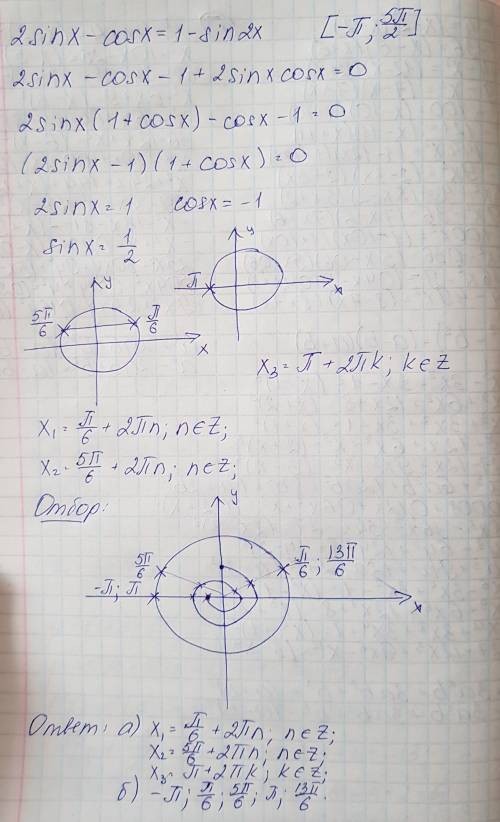 2sinx - cosx = 1 - sin2x [-π; 5π/2]
2sinx - cosx - 1 + 2sinx cosx = 0
2sinx(1+cosx) - cosx - 1 = 0
(2sinx - 1)(1 + cosx) = 0
2sinx = 1 cosx = -1
sinx = 1/2
y
π
x
y
5π/6 π/6
x
x₃ = π + 2πk; k∈Z
x₁ = π/6 + 2πn; n∈Z;
x₂ = 5π/6 + 2πn; n∈Z;
Отбор:
y
5π/6 π/6; 13π/6
-π; π
x
Ответ: а) x₁ = π/6 + 2πn; n∈Z;
x₂ = 5π/6 + 2πn; n∈Z;
x₃ = π + 2πk; k∈Z;
б) -π; π/6; 5π/6; π; 13π/6.